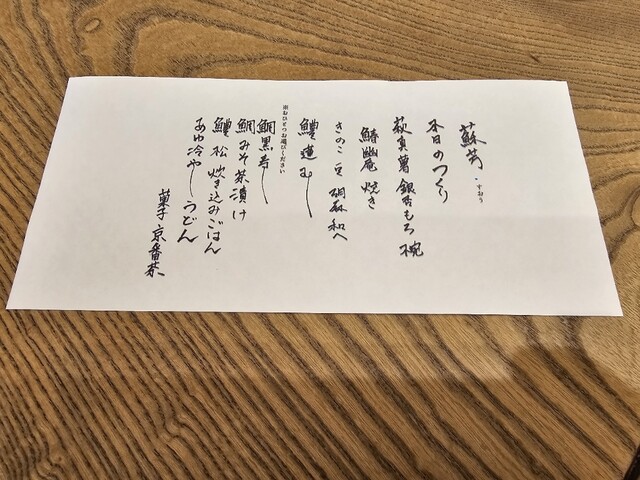 蘇芳・すおう
本日のつくり
萩真薯 銀杏もろ 椀
鰆幽庵焼き
きのこ 豆 胡麻和へ
鱧蓮む
※おひとつお選びください
鯛黒寿し
鯛みそ茶漬け
鱧松 炊き込みごはん
あゆ冷やしうどん
菓子 京番茶